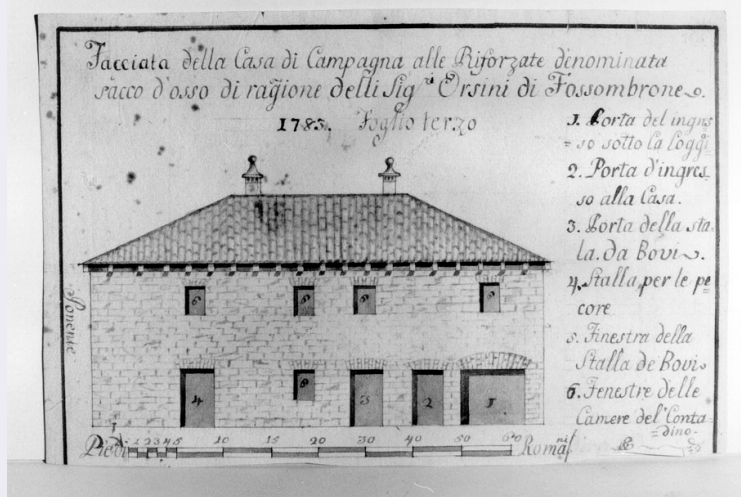 Facciata della Casa di Campagna alle Riforzate denominata
sacco d'osso di ragione delli Sigri Orsini di Fossombrone.
1783. Foglio terzo
1. Porta del ingres
= so sotto la Loggi
2. Porta d'ingres
so alla Casa.
3. Porta della sta
la da Bovi.
4. Stalla per le pe
core
5. Finestra della
Stalla de Bovi
6. Fenestre delle
Camere del' Conta
=dino.
Ponente
6 6 6 6
4 3 2 1
Piedi 1 2 3 4 5 10 15 20 30 40 50 60 Romani